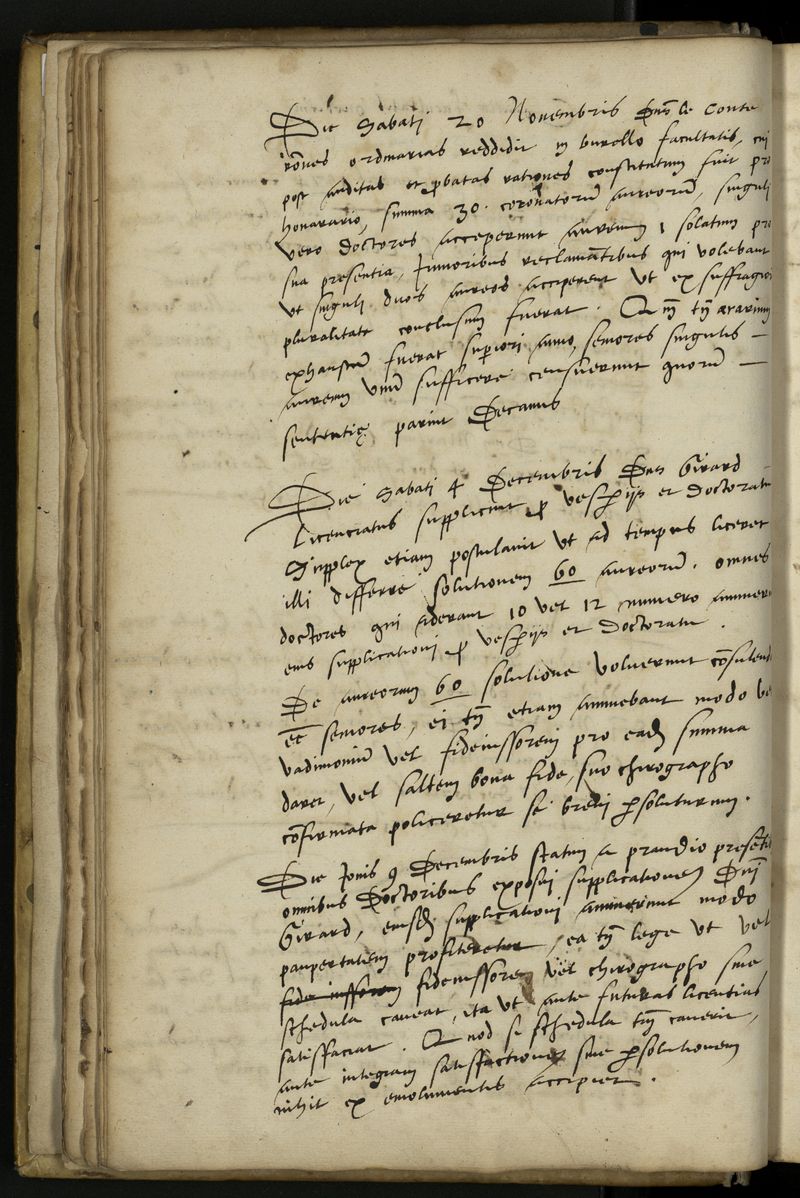 Die Sabati 20 Novembris Dns le Conte
rões ordinarias reddidit in burello facultatis, cui
post auditas et pbatas rationes constitutum fuit pro
honorario, summa 30. coronatorũ aureorũ, singuli
vero doctores acceperunt aureum 1 solatum pro
sua presentia, Junioribus reclamãtibus qui volebant
ut singuli duos aureos acciperent ut ex suffragiorũ
pluralitate conclusum fuerat. Qm̃ tñ ærarium
exhaustũ fuerat superiori anno, seniores singulis
aureum unũ sufficere censuerunt quorũ
sententię paruit Decanus
Die Sabati 4 Decembris Dns Girard
licenciatus supplicuit p vesperijs et doctoratu
Supplex etiam postulavit ut ad tempus liceret
illi differre solutionem 60 aureorũ. omnes
doctores qui aderant 10 vel 12 numero annuerũt
eius supplicationi p vesperijs et doctoratu.
De aureorum 60 solutione voluerunt cõsulendos
eẽ seniores, ei tñ etiam annuebant modo vel
vadimoniũ vel fideiussorem pro eadẽ summa
daret, vel saltem bona fide, suo chirographo
cõfirmata policeretur se brevi psoluturum.
Die Jovis 9 Decembris statim a prandio presentibus
omnibus Doctoribus exposui supplicationem Dni
Girard, eiusdẽ supplicationi annuerunt modo
paupertatem profiteretur, ea tñ lege ut vel
fide iussorem fideiussorem vel chirographo sive
schedula caveat, ita ut ante futuras licentias
satisfaciat. Quod si schedula tñ caverit,
ante integram satisfactionem sive psolutionem
nihil ex emolumentis accipiet.